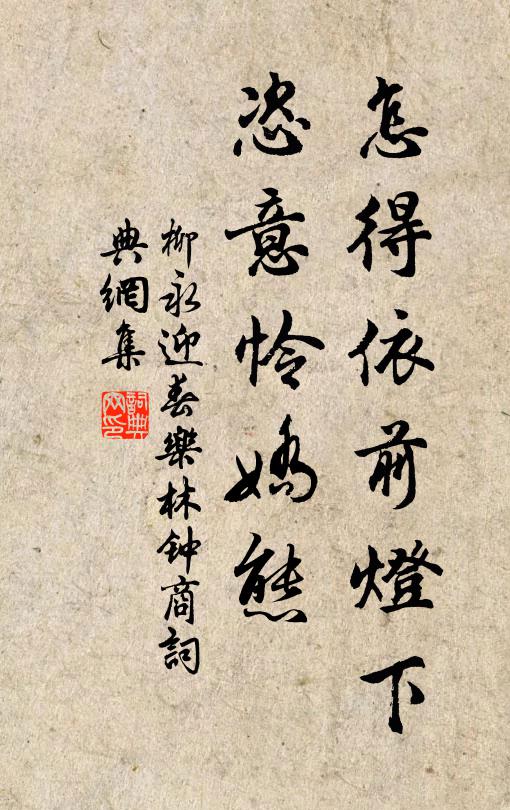 怎得依前燈下
恣意怜嬌態
柳永迎春樂林钟商詞
典網集
詞典
网印